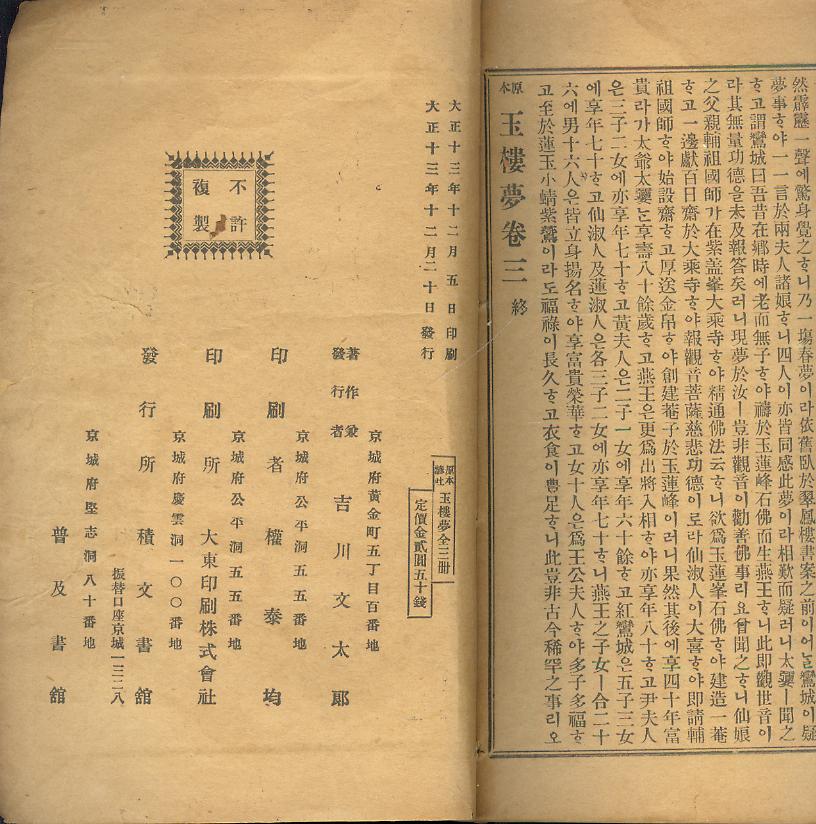 然霹靂一聲에驚身覺之ᄒᆞ니乃一塲春夢이라依舊臥於翠鳳樓書案之前이어ᄂᆞᆯ鸞城이疑
夢事ᄒᆞ야一一言於兩夫人諸娘ᄒᆞ니四人이亦皆同感此夢이라相歎而疑러니太孃ㅣ聞之
ᄒᆞ고謂鸞城曰吾昔在鄕時에老而無子ᄒᆞ야禱於玉蓮峰石佛而生燕王ᄒᆞ니此即觀世音이
라其無量功德을未及報答矣러니現夢於汝ㅣ豈非觀音이勸善佛事리요曾聞之ᄒᆞ니仙娘
之父親輔祖國師가在紫盖峯大乘寺ᄒᆞ야精通佛法云ᄒᆞ니欲爲玉蓮峯石佛ᄒᆞ야建造一菴
ᄒᆞ고一邊獻百日齋於大乘寺ᄒᆞ야報觀音菩薩慈悲功德이로라仙淑人이大喜ᄒᆞ야即請輔
祖國師ᄒᆞ야始設齋ᄒᆞ고厚送金帛ᄒᆞ야創建菴子於玉蓮峰이러니果然其後에享四十年富
貴라가太爺太孃ᄂᆞᆫ享壽八十餘歲ᄒᆞ고燕王은更爲出將入相ᄒᆞ야亦享年八十ᄒᆞ고尹夫人
은三子二女에亦享年七十ᄒᆞ고黃夫人은二子一女에享年六十餘ᄒᆞ고紅鸞城은五子三女
에享年七十ᄒᆞ고仙淑人及蓮淑人은各三子二女에亦享年七十ᄒᆞ니燕王之子女ㅣ合二十
六에男十六人은皆立身揚名ᄒᆞ야享富貴榮華ᄒᆞ고女十人은爲王公夫人ᄒᆞ야多子多福ᄒᆞ
고至於蓮玉小蜻紫鸞이라도福祿이長久ᄒᆞ고衣食이豊足ᄒᆞ니此豈非古今稀罕之事리오
原本 玉樓夢卷三 終
大正十三年十二月五日印刷
大正十三年十二月二十日發行
不許
複製
原本諺吐 玉樓夢全三冊
定價金貳圓五十錢
京城府黃金町五丁目百番地
著作兼發行者 吉川文太郎
京城府公平洞五五番地
印刷者 權泰均
京城府公平洞五五番地
印刷所 大東印刷株式會社
京城府慶雲洞一〇〇番地
發行所 積文書舘
振替口座京城一三二八
京城府堅志洞八十番地
普及書舘